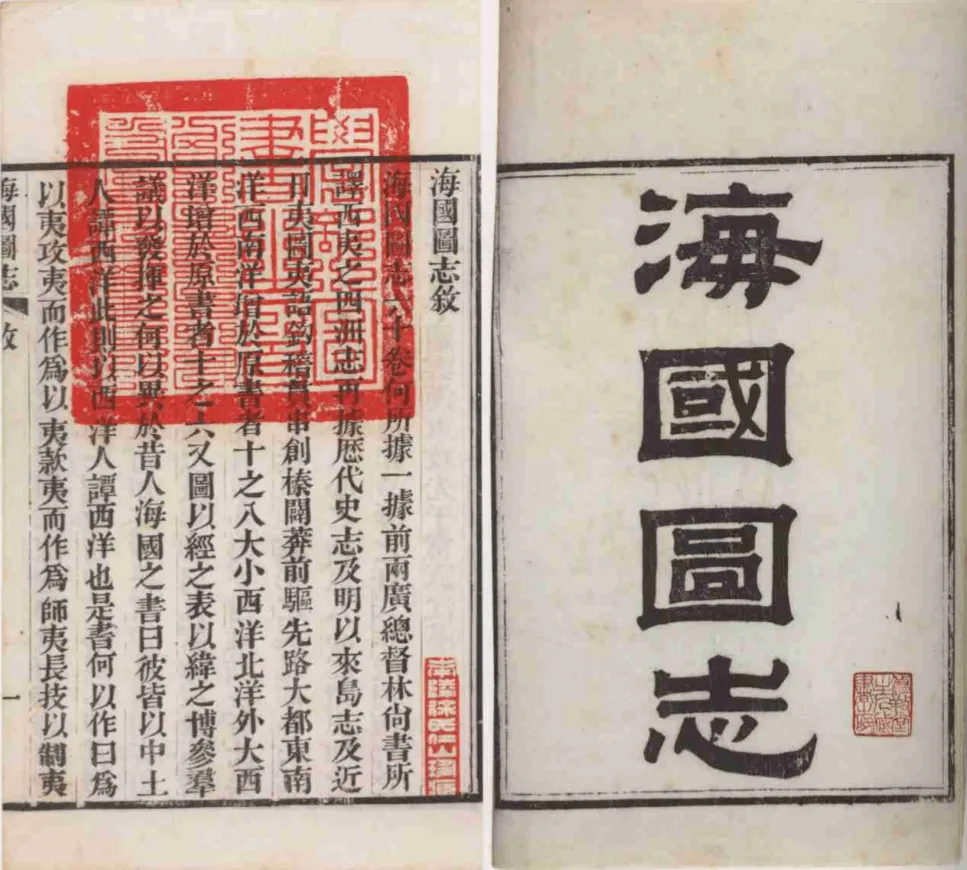 海國圖志
海國圖志敘
海國圖志六十卷何所據一據前兩廣總督林尚書所
譯西夷之四洲志再據厯代史志及明以來島志及近
日夷圖夷語鉤稽貫串創榛闢莽前驅先路大都東南
洋西南洋增於原書者十之八大小西洋北洋外大西
洋增於原書者十之六又圖以經之表以緯之博參羣
議以發揮之何以異於昔人海國之書曰彼皆以中土
人譚西洋此則以西洋人譚西洋也是書何以作曰爲
以夷攻夷而作爲以夷款夷而作爲師夷長技以制夷
海國圖志 敘 一